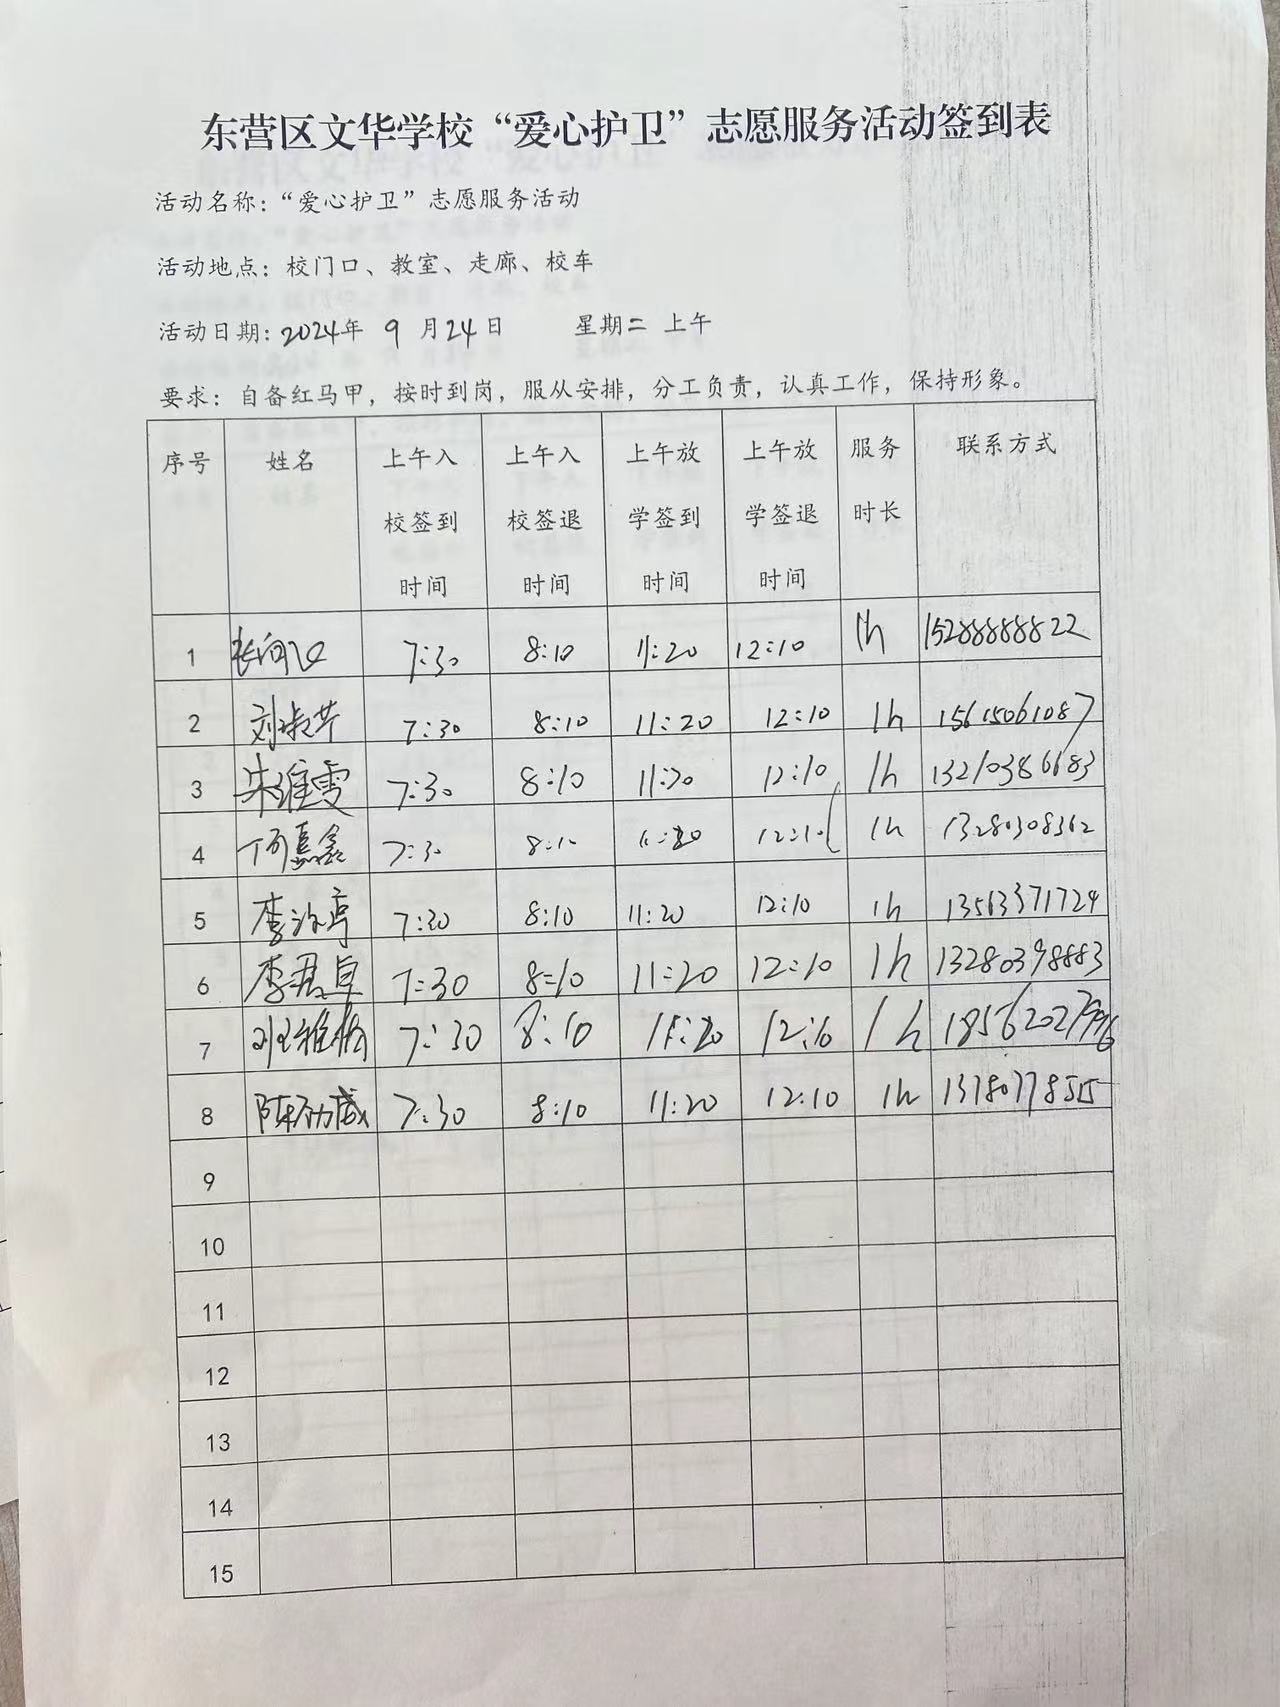 东营区文华学校“爱心护卫”志愿服务活动签到表
活动名称：“爱心护卫”志愿服务活动
活动地点：校门口、教室、走廊、校车
活动日期：2024年 9 月24日 星期二 上午
要求：自备红马甲，按时到岗，服从安排，分工负责，认真工作，保持形象。
序号 姓名 上午入校签到时间 上午入校签退时间 上午放学签到时间 上午放学签退时间 服务时长 联系方式
1 7:30 8:10 11:20 12:10 1h 15288888822
2 刘淑芹 7:30 8:10 11:20 12:10 1h 15615061087
3 朱维雯 7:30 8:10 11:20 12:10 1h 13210386683
4 7:30 8:10 11:20 12:10 1h 13280308362
5 7:30 8:10 11:20 12:10 1h 13563371724
6 李君卓 7:30 8:10 11:20 12:10 1h 13280398883
7 7:30 8:10 11:20 12:10 1h
8 7:30 8:10 11:20 12:10 1h
9
10
11
12
13
14
15